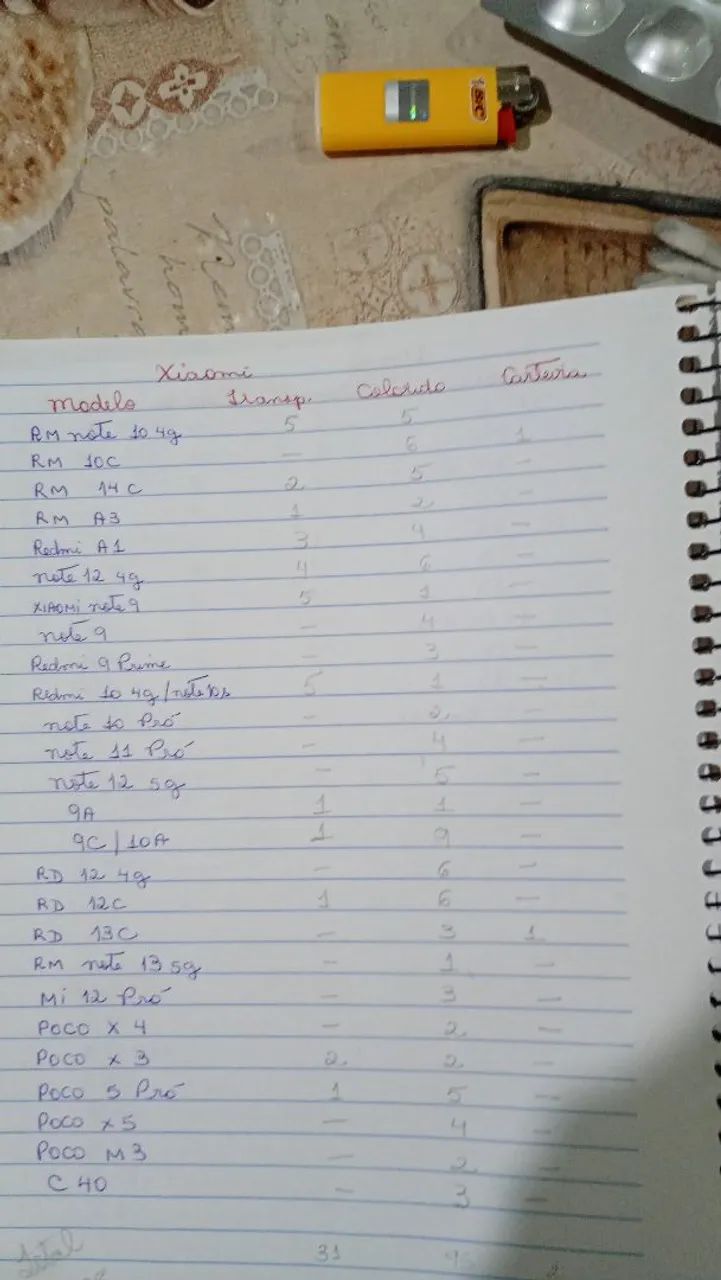 BIC
palavra
hom
Mem
Xiaomi
Modelo Transp. Colorido Carteira
RM note 10 4g 5 5
RM 10C — 6 1
RM 14C 2 5 —
RM A3 1 2 —
Redmi A1 3 4 —
note 12 4g 4 6 —
XIAOMI note 9 5 1 —
note 9 — 4 —
Redmi 9 Prime — 3 —
Redmi 10 4g/note 10s 5 1 —
note 10 Pró — 2 —
note 11 Pró — 4 —
note 12 5g — 5 —
9A 1 1 —
9C/10A 1 9 —
RD 12 4g — 6 —
RD 12C 1 6 —
RD 13C — 3 1
RM note 13 5g — 1 —
Mi 12 Pró — 3 —
POCO X 4 — 2 —
POCO X 3 2 2 —
POCO 5 Pró 1 5 —
POCO X5 — 4 —
POCO M3 — 2 —
C 40 — 3 —
Total 31 2